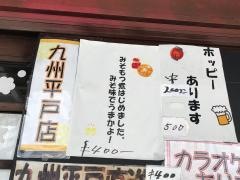 九州平戸店
みそもつ煮はじめました。
みそ味でうまかよ!
¥400-
ホッピー
あります
500
カラオケ
¥400